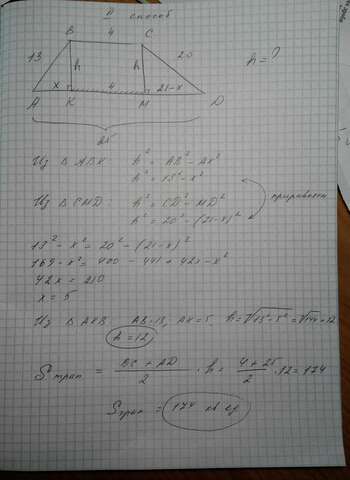 II способ
B 4 C
13 20
h h h = ?
x 4 21-x
A K M D
25
Из Δ ABK: h² = AB² - AK²
h² = 13² - x²
Из Δ CMD: h² = CD² - MD²
приравняем
h² = 20² - (21-x)²
13² - x² = 20² - (21-x)²
169 - x² = 400 - 441 + 42x - x²
42x = 210
x = 5
Из Δ AKB AB=13, AK=5 h = √13²-5² = √144 = 12
h = 12
Sтрап = BC + AD / 2 · h = 4 + 25 / 2 · 12 = 174
Sтрап = 174 кв ед